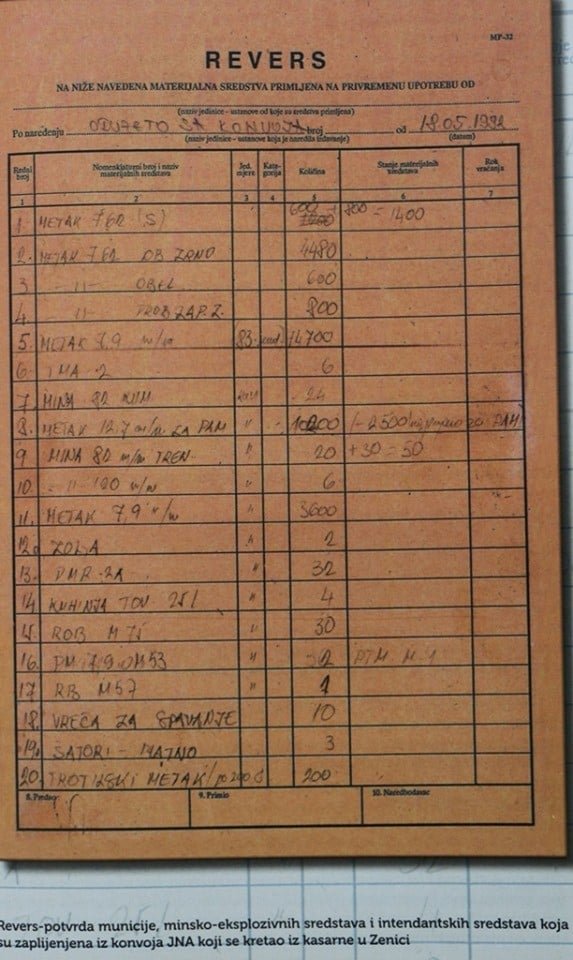 MP-32
REVERS
NA NIŽE NAVEDENA MATERIJALNA SREDSTVA PRIMLJENA NA PRIVREMENU UPOTREBU OD
(naziv jedinice - ustanove od koje su sredstva primljena)
Po naređenju ODUZETO SA KONVOJA broj od 18.05.1992
(naziv jedinice - ustanove koja je naredila izdavanje) (datum)
Redni broj Nomenklaturni broj i naziv materijalnih sredstava Jed. mjere Kategorija Količina Stanje materijalnih sredstava Rok vraćanja
1 2 3 4 5 6 7
1. METAK 7.62 (S) 600 + 800 = 1400
2. METAK 7.62 OB ZRNO 4480
3 -"- OBEL 600
4. -"- PROB.ZAP.Z. 800
5. METAK 7,9 m/m 14700
6. TMA 2 6
7. MINA 82 24
8. METAK 12.7 m/m ZA PAM " PAM
9 MINA 82 m/m TREN. " 20 +30 = 50
10. -"- 120 m/m " 6
11. METAK 7,9 m/m " 3600
12. ZOLJA " 2
13. PMR-2A " 32
14 KUHINJA 25 l " 4
15. ROB M75 " 30
16. PM 7,9 M53 "
17. RB M57 " 1
18. VREĆA ZA SPAVANJE 10
19. ŠATORI - 3
20. TROTILSKI METAK 200
8. Predao 9. Primio 10. Naredbodavac
Revers-potvrda municije, minsko-eksplozivnih sredstava i intendantskih sredstava koja
su zaplijenjena iz konvoja JNA koji se kretao iz kasarne u Zenici